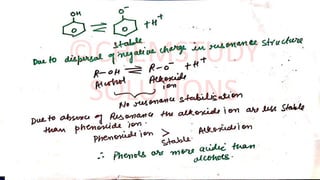 OH ⇌ O⁻ + H⁺
stable
Due to dispersal of negative charge in resonance structure
R-OH ⇌ R-O⁻ + H⁺
Alcohol Alkoxide
ion
No resonance stabilization
Due to absence of Resonance the alkoxide ion are less stable
than phenoxide ion.
Phenoxide ion > Alkoxide ion
stable
∴ Phenols are more acidic than
alcohols.
©CHEMSTUDY
SOLUTIONS